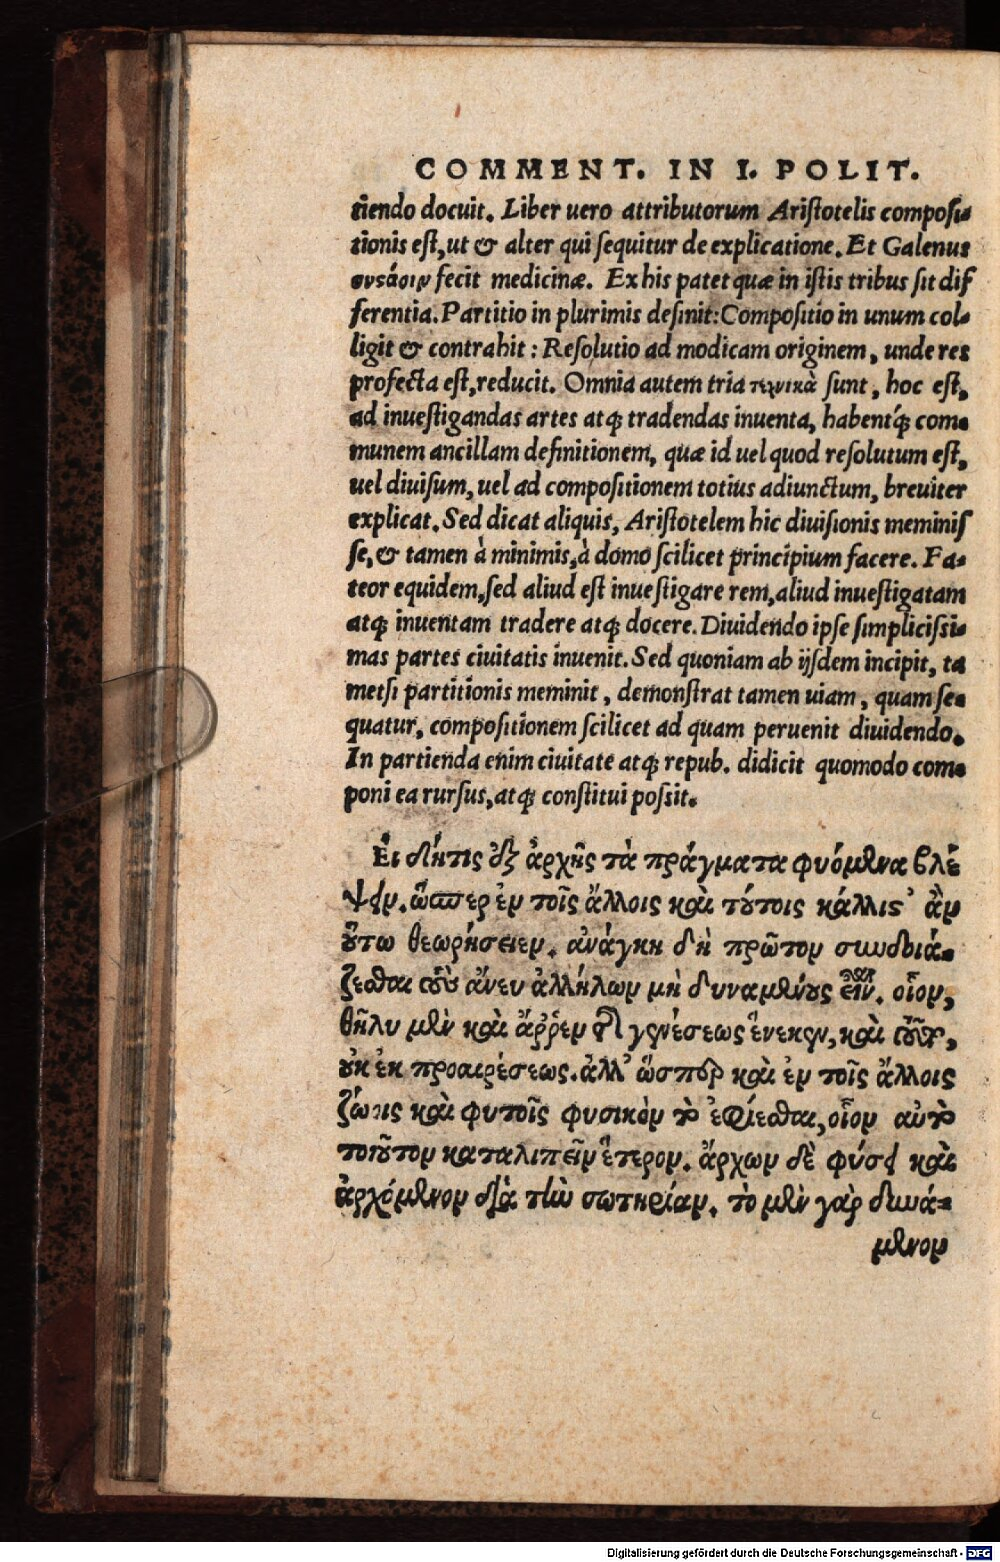 COMMENT. IN I. POLIT.
tiendo docuit. Liber uero attributorum Aristotelis composi-
tionis est, ut & alter qui sequitur de explicatione. Et Galenus
συςάσιν fecit medicinæ. Ex his patet quæ in istis tribus sit dif
ferentia. Partitio in plurimis desinit: Compositio in unum col-
ligit & contrahit: Resolutio ad modicam originem, unde res
profecta est, reducit. Omnia autem tria τεχνικὰ sunt, hoc est,
ad inuestigandas artes atq; tradendas inuenta, habentq́; com-
munem ancillam definitionem, quæ id uel quod resolutum est,
uel diuisum, uel ad compositionem totius adiunctum, breuiter
explicat. Sed dicat aliquis, Aristotelem hic diuisionis meminis
se, & tamen à minimis, à domo scilicet principium facere. Fa-
teor equidem, sed aliud est inuestigare rem, aliud inuestigatam
atq; inuentam tradere atq; docere. Diuidendo ipse simplicissi-
mas partes ciuitatis inuenit. Sed quoniam ab ijsdem incipit, ta
metsi partitionis meminit, demonstrat tamen uiam, quam se-
quatur, compositionem scilicet ad quam peruenit diuidendo.
In partienda enim ciuitate atq; repub. didicit quomodo com-
poni ea rursus, atq; constitui possit.
Εἰ δή τις ἐξ ἀρχῆς τὰ πράγματα φυόμενα βλέ
ψειν. ὥσπερ ἐν τοῖς ἄλλοις καὶ τούτοις κάλλις' ἂν
οὕτω θεωρήσειεν. ἀνάγκη δὴ πρῶτον συνδυά-
ζεσθαι τοὺς ἄνευ ἀλλήλων μὴ δυναμένους εἶναι. οἷον,
θῆλυ μὲν καὶ ἄῤῥεν τῆς γενέσεως ἕνεκεν, καὶ τοῦτο,
οὐκ ἐκ προαιρέσεως. ἀλλ' ὥσπερ καὶ ἐν τοῖς ἄλλοις
ζώοις καὶ φυτοῖς φυσικὸν τὸ ἐφίεσθαι, οἷον αὐτὸ
τοιοῦτον καταλιπεῖν ἕτερον. ἄρχων δὲ φύσει καὶ
ἀρχόμενον διὰ τὴν σωτηρίαν. τὸ μὲν γὰρ δυνά-
μενον
Digitalisierung gefördert durch die Deutsche Forschungsgemeinschaft - DFG